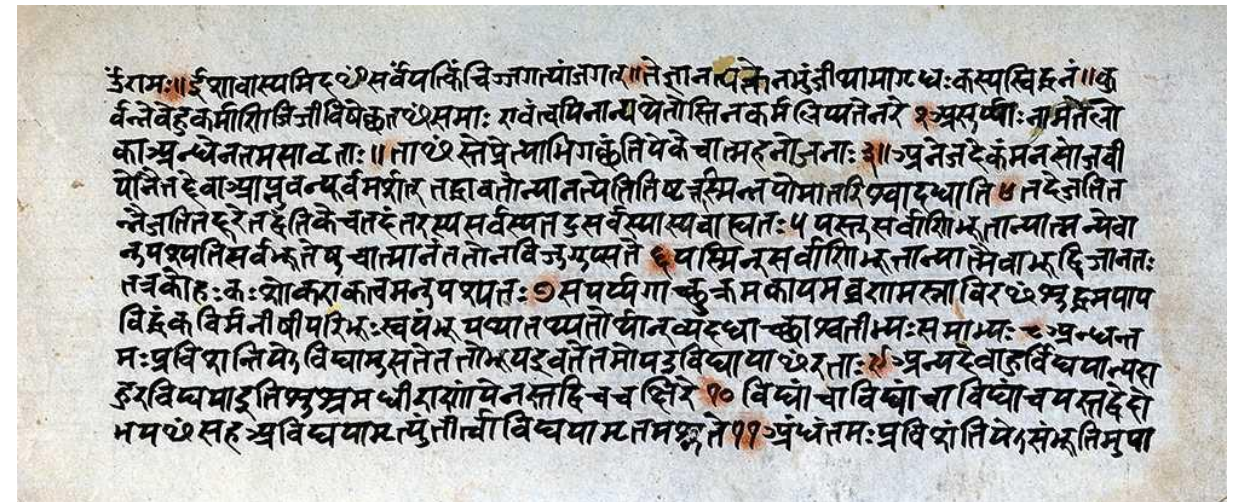 उँरामः॥ईशावास्यमिदꣳसर्वंयत्किंचिज्जगत्यांजगत्॥तेनत्यक्तेनभुंजीथामागृधःकस्यस्विद्धनं॥कु
र्वन्नेवेहकर्माणिजिजीविषेच्छतꣳसमाः एवंत्वयिनान्यथेतोस्तिनकर्मलिप्यतेनरे २असुर्य्याःनामतेलो
काअन्धेनतमसावृताः॥ताꣳस्तेप्रेत्याभिगच्छंतियेकेचात्महनोजनाः३॥अनेजदेकंमनसोजवी
योनैनद्देवाआप्नुवन्पूर्वमर्शत् तद्धावतोन्यानत्येतितिष्टत्तस्मिन्नपोमातरिश्वादधाति ४तदेजतित
न्नैजतितद्दूरेतद्वंतिके चतदंतरस्यसर्वस्यतदुसर्वस्यास्यबाह्यतः५ यस्तुसर्वाणिभूतान्यात्मन्येवा
नुपश्यतिसर्वभूतेषुचात्मानंततोनविजुगुप्सते ६यस्मिन्सर्वाणिभूतान्यात्मैवाभूद्विजानतः
तत्रकोहःकःशोकएकत्वमनुपश्यतः७सपर्य्यगाच्छुक्रमकायमव्रणमस्नाविरꣳशुद्धमपाप
विद्धंकविर्मनीषीपरिभूःस्वयंभूयथातथ्यतोर्थान्व्यदधाच्छाश्वतीभ्यःसमाभ्यः ८अन्धन्त
मःप्रविशन्तियेऽविद्यामुसतेततोभूयइवतेतमोयउविद्यायाꣳरताः९अन्यदेवाहुर्विद्ययान्यदा
हुरविद्ययाइतिशुश्रुमधीराणांयेनस्तद्विचचक्षिरे१० विद्यांचाविद्यांचाविद्यांचयस्तद्वेदो
भयꣳसहअविद्ययामृत्युंतीर्त्वाविद्ययामृतमश्नुते११अंधंतमःप्रविशंतियेऽसंभूतिमुपा